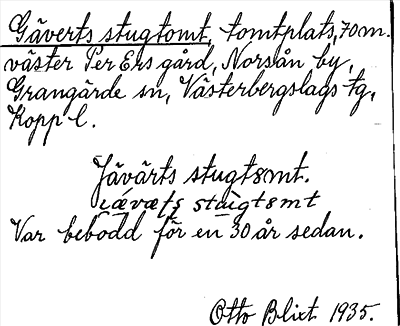 Gäverts stugtomt, tomtplats, 70 m.
väster Per Ers gård, Norsån by,
Grangärde sn, Västerbergslags tg,
Kopp l.
Jävärts stugtomt.
Var bebodd för en 30 år sedan.
Otto Blixt 1935.